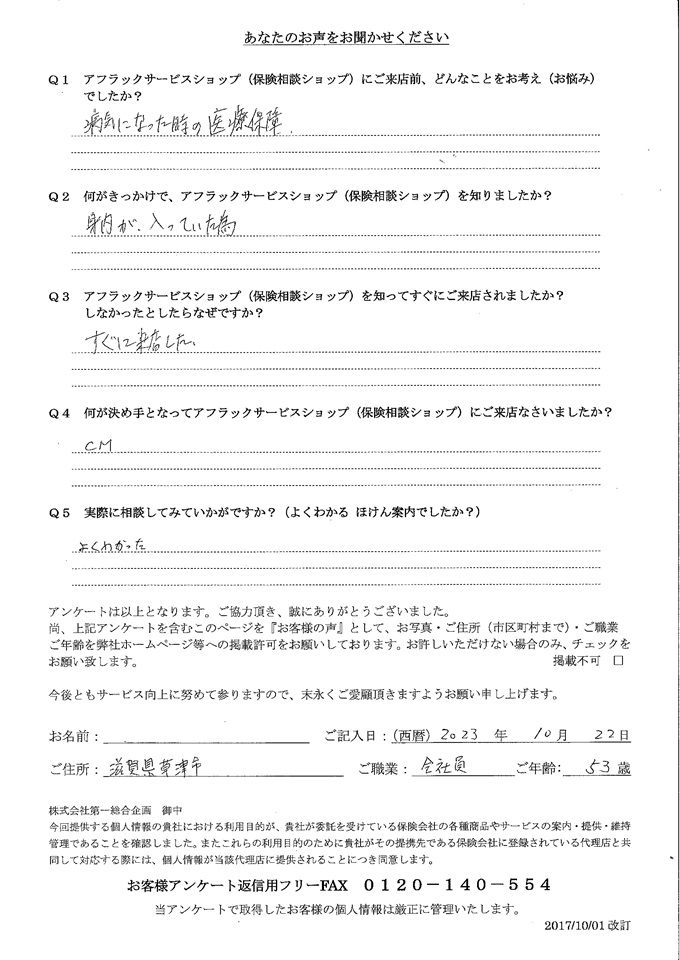 あなたのお声をお聞かせください
Q1 アフラックサービスショップ（保険相談ショップ）にご来店前、どんなことをお考え（お悩み）
でしたか？
病気になった時の医療保障.
Q2 何がきっかけで、アフラックサービスショップ（保険相談ショップ）を知りましたか？
身内が、入っていた為
Q3 アフラックサービスショップ（保険相談ショップ）を知ってすぐにご来店されましたか？
しなかったとしたらなぜですか？
すぐに来店した、
Q4 何が決め手となってアフラックサービスショップ（保険相談ショップ）にご来店なさいましたか？
CM
Q5 実際に相談してみていかがですか？（よくわかる ほけん案内でしたか？）
よくわかった
アンケートは以上となります。ご協力頂き、誠にありがとうございました。
尚、上記アンケートを含むこのページを『お客様の声』として、お写真・ご住所（市区町村まで）・ご職業
ご年齢を弊社ホームページ等への掲載許可をお願いしております。お許しいただけない場合のみ、チェックを
お願い致します。 掲載不可 □
今後ともサービス向上に努めて参りますので、末永くご愛顧頂きますようお願い申し上げます。
お名前： ご記入日：（西暦）2023 年 10月 22日
ご住所：滋賀県草津市 ご職業：会社員 ご年齢：53歳
株式会社第一総合企画 御中
今回提供する個人情報の貴社における利用目的が、貴社が委託を受けている保険会社の各種商品やサービスの案内・提供・維持
管理であることを確認しました。またこれらの利用目的のために貴社がその提携先である保険会社に登録されている代理店と共
同して対応する際には、個人情報が当該代理店に提供されることにつき同意します。
お客様アンケート返信用フリーFAX 0120－140－554
当アンケートで取得したお客様の個人情報は厳正に管理いたします。
2017/10/01 改訂